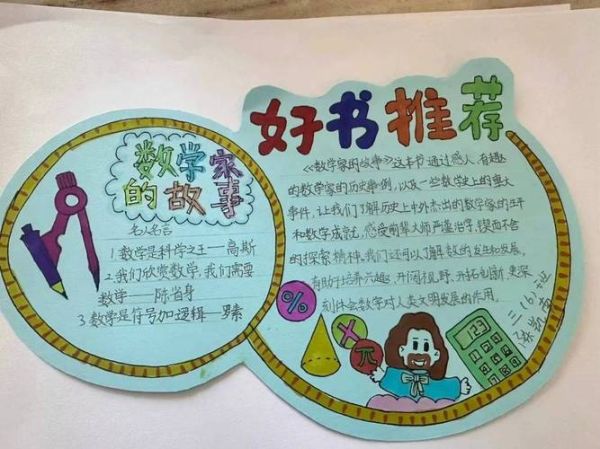 好书推荐
数学家
的故事
名人名言
1.数学是科学之王——高斯
2.我们欣赏数学,我们需要
数学——陈省身
3.数学是符号加逻辑——罗素
《数学家的故事》这本书通过感人、有趣
的数学家的历史事例,以及一些数学史上的重大
事件,让我们了解历史上中外杰出的数学家的生平
和数学成就,感受前辈大师严谨治学、锲而不舍
的探索精神,我们还可以了解数的发生和发展。
有助于培养兴趣、开阔视野、开拓创新,更深
刻体会数学对人类文明发展的作用。
%
X
π
123
三、(6)班